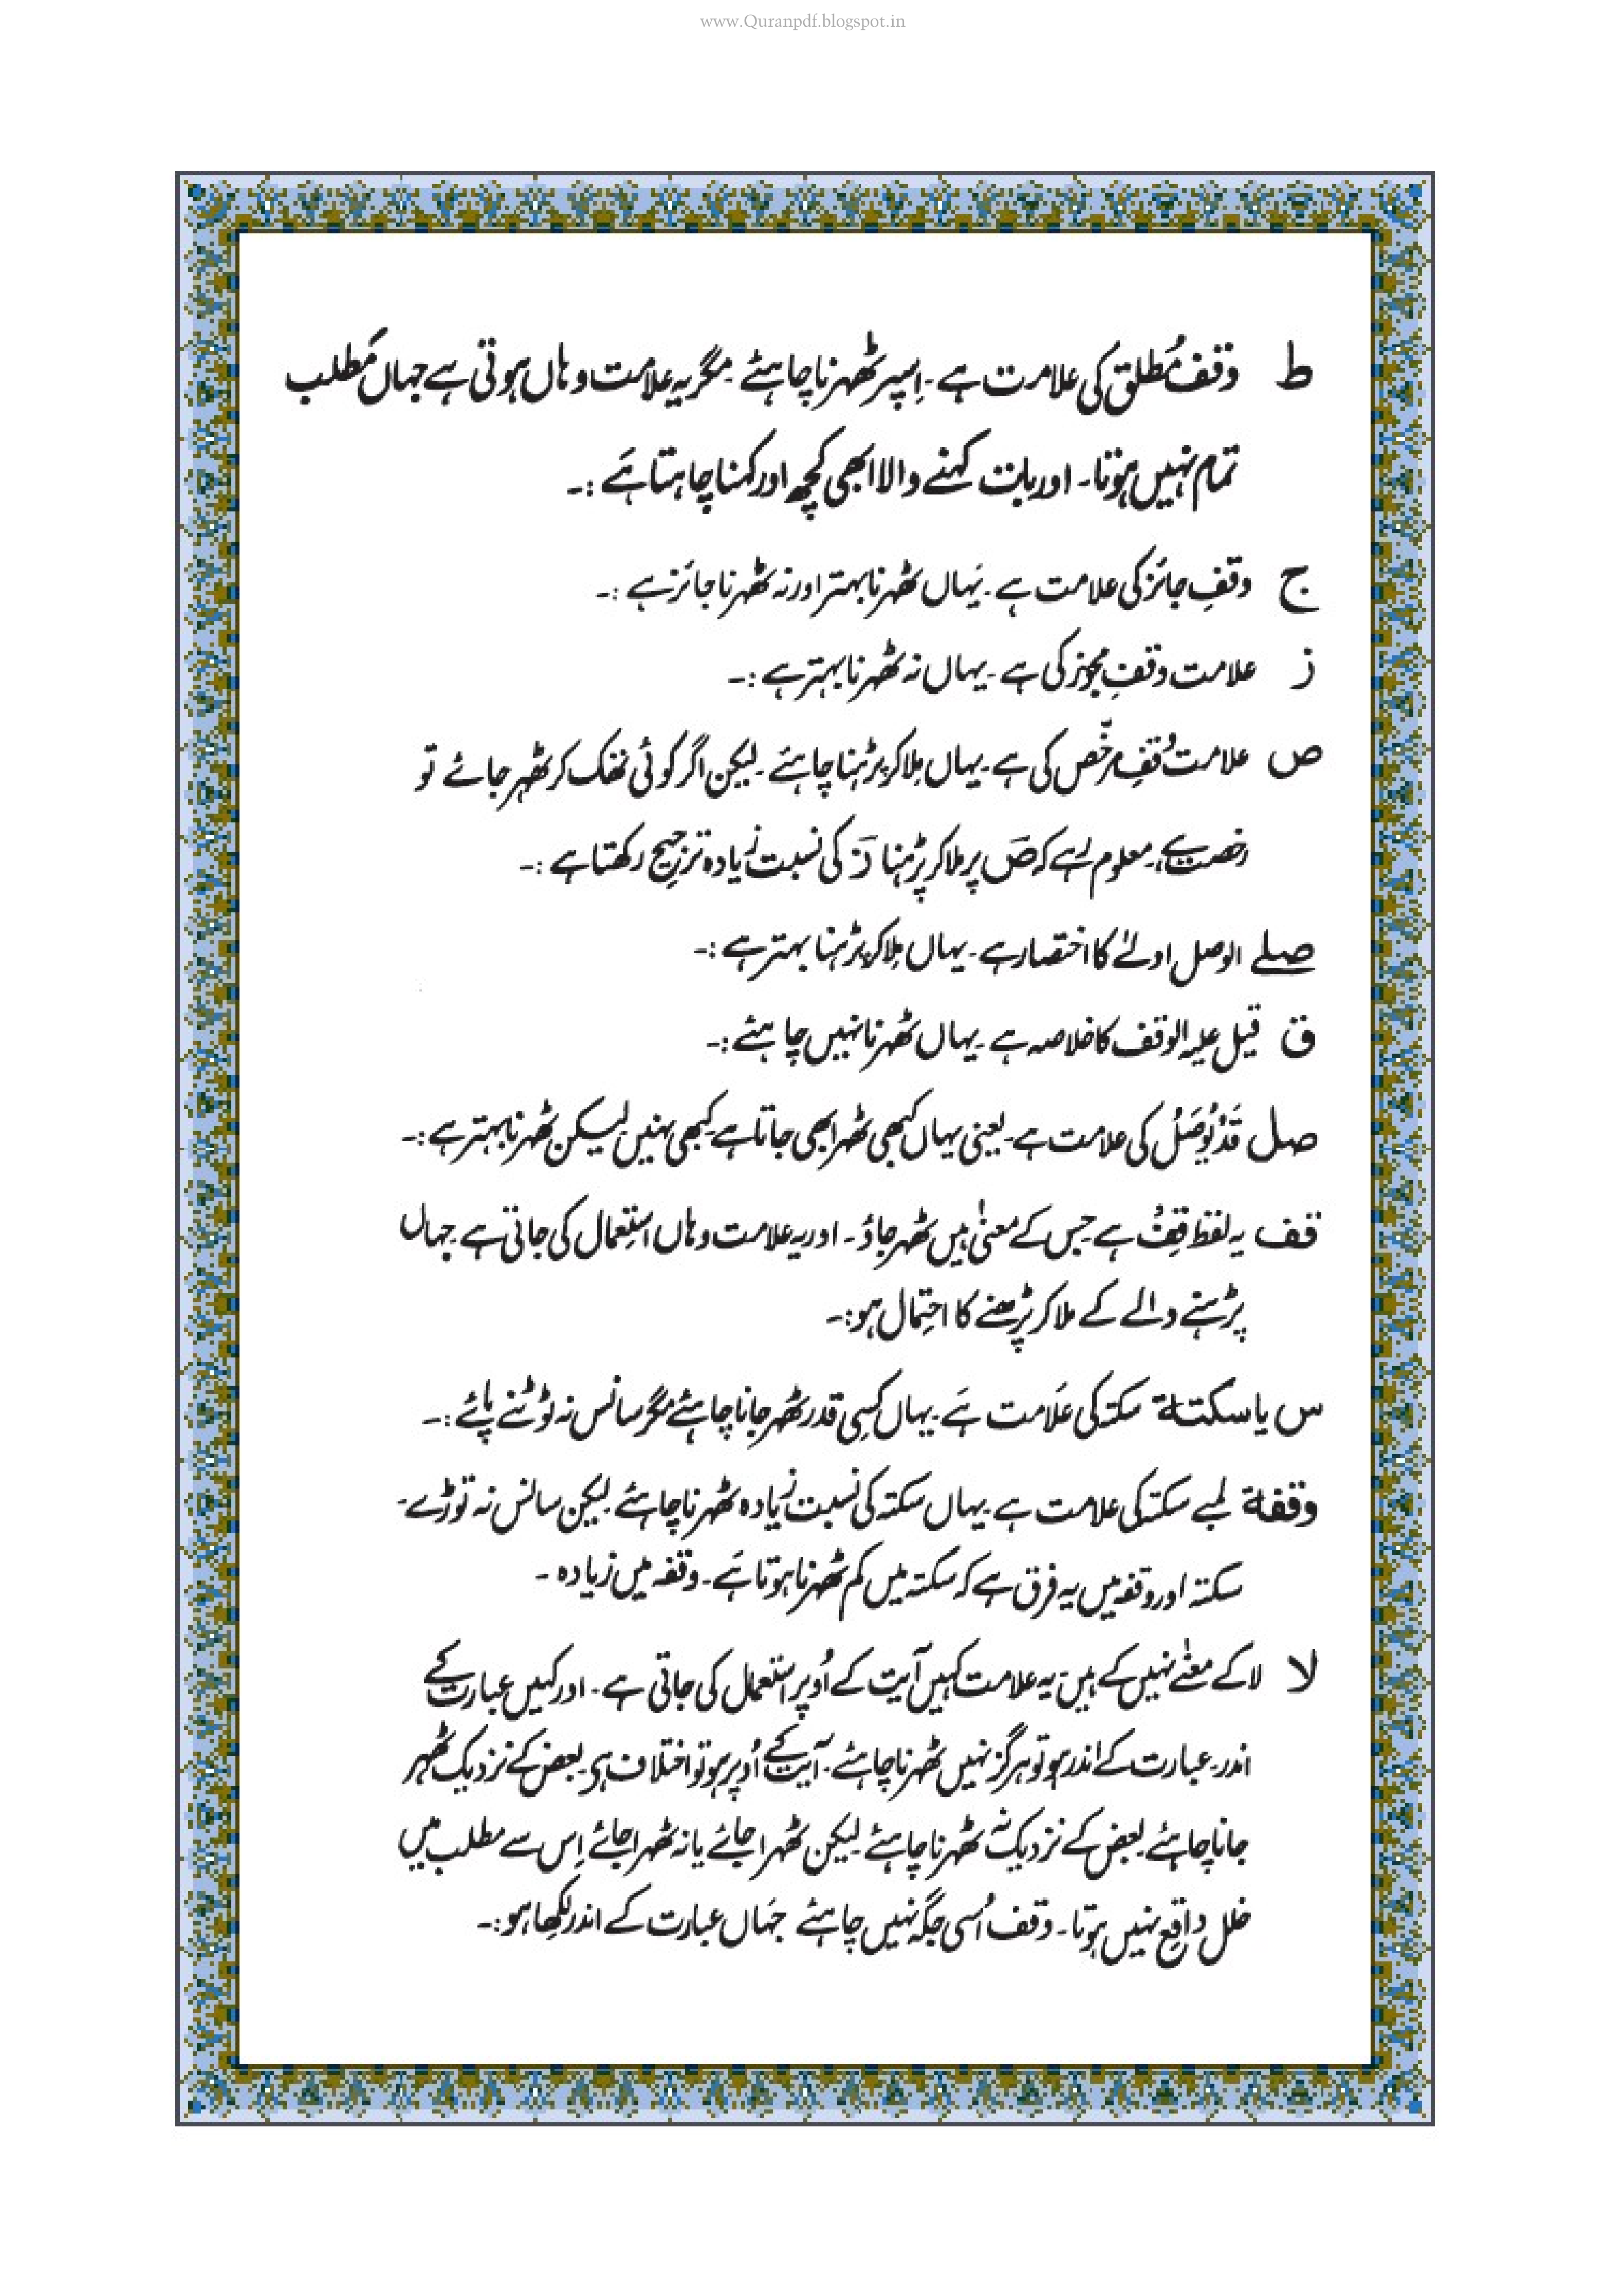 www.Quranpdf.blogspot.in
ط وقف مُطلق کی علامت ہے۔ اِسپر ٹھہرنا چاہئے۔ مگر یہ علامت وہاں ہوتی ہے جہاں مَطلب
تمام نہیں ہوتا۔ اور بات کہنے والا ابھی کچھ اور کہنا چاہتا ہَے :۔
ج وقفِ جائز کی علامت ہے۔ یَہاں ٹھہرنا بہتر اور نہ ٹھہرنا جائز ہے :۔
ز علامت وقفِ مجوّز کی ہے۔ یہاں نہ ٹھہرنا بہتر ہے :۔
ص علامت وقفِ مرخّص کی ہے۔ یہاں مِلا کر پڑہنا چاہئے۔ لیکن اگر کوئی تھک کر ٹھہر جائے تو
رخصت ہے۔ معلوم رہے کہ صؔ پر ملا کر پڑہنا زؔ کی نسبت زیادہ ترجیح رکھتا ہے :۔
صلے الوصل اولےٰ کا اختصار ہے۔ یہاں مِلا کر پڑہنا بہتر ہے :۔
ق قیل علیہ الوقف کا خلاصہ ہے۔ یہاں ٹھہرنا نہیں چاہئے :۔
صل قَدْ یُوصَلُ کی علامت ہے۔ یعنی یہاں کبھی ٹھہرا بھی جاتا ہے کبھی نہیں۔ لیکن ٹھہرنا بہتر ہے :۔
قف یہ لفظ قِفْ ہے جس کے معنیٰ ہیں ٹھہر جاؤ۔ اور یہ علامت وہاں استِعمال کی جاتی ہے۔ جہاں
پڑہنے والے کے ملا کر پڑھنے کا احتِمال ہو :۔
س یا سکتة سکتہ کی علَامت ہَے۔ یہاں کسِی قدر ٹھہر جانا چاہئے مگر سانس نہ ٹوٹنے پائے :۔
وقفة لمبے سکتہ کی علامت ہے۔ یہاں سکتہ کی نسبت زیادہ ٹھہرنا چاہئے۔ لیکن سانس نہ توڑے۔
سکتہ اور وقفہ میں یہ فرق ہے کہ سکتہ میں کم ٹھہرنا ہوتا ہَے۔ وقفہ میں زیادہ۔
لا لا کے معنےٰ نہیں کے ہیں۔ یہ علامت کہیں آیت کے اُوپر استعمال کی جاتی ہے۔ اور کہیں عبارت کے
اندر۔ عبارت کے اندر ہو تو ہرگز نہیں ٹھہرنا چاہئے۔ آیت کے اُوپر ہو تو اختلاف ہی۔ بعض کے نزدیک ٹھہر
جانا چاہئے۔ بعض کے نزدیک نہ ٹھہرنا چاہئے۔ لیکن ٹھہرا جائے یا نہ ٹھہرا جائے اِس سے مطلب میں
خلل واقع نہیں ہوتا۔ وقف اُسی جگہ نہیں چاہئے جہَاں عبارت کے اندر لکِھا ہو :۔